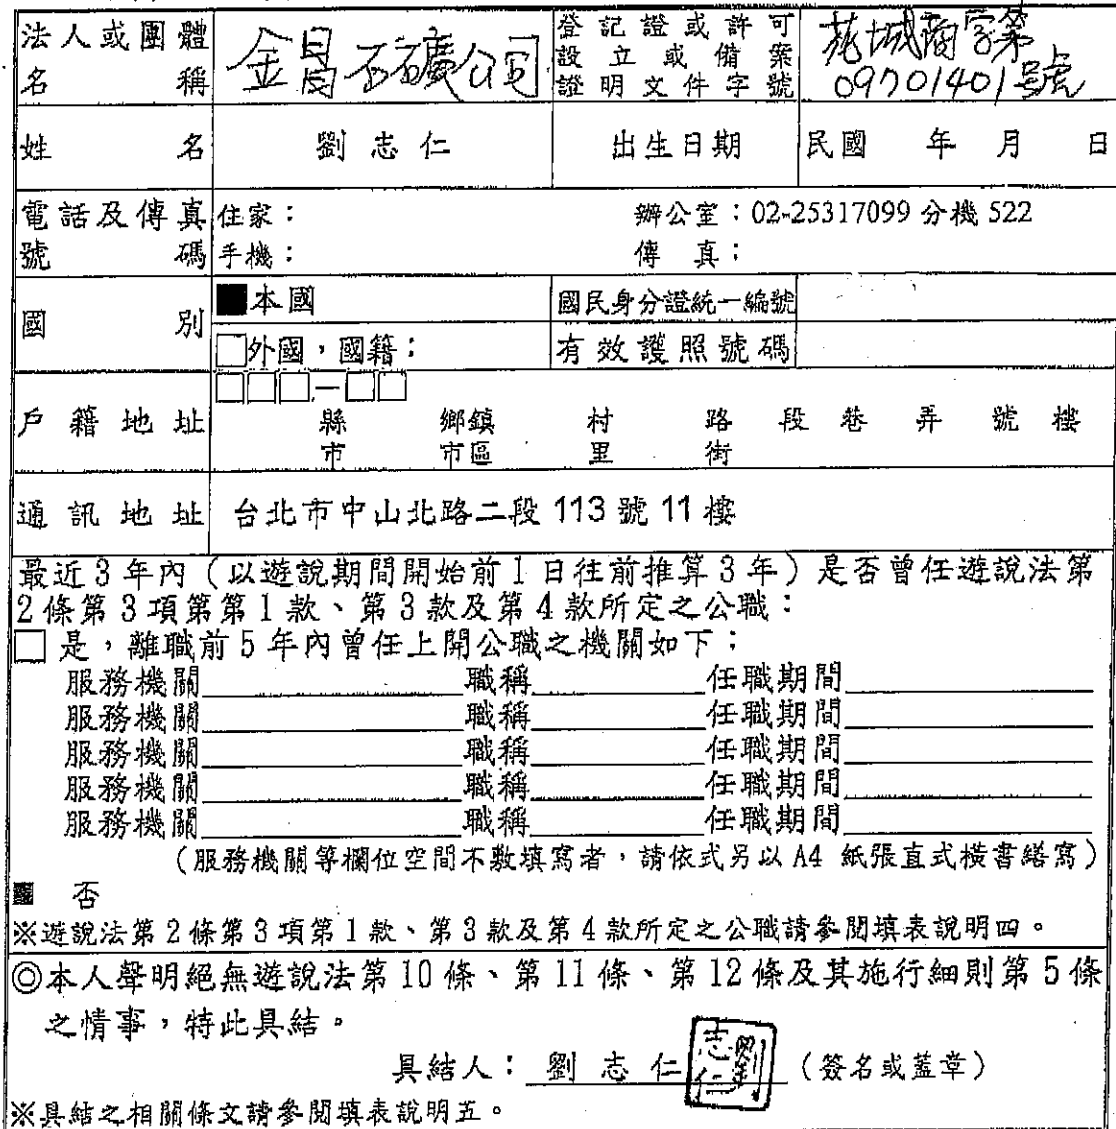 法人或團體名稱 金昌石礦公司 登記證或許可設立或備案證明文件字號 花城商字第09701401號
姓名 劉志仁 出生日期 民國 年 月 日
電話及傳真號碼 住家： 辦公室：02-25317099 分機 522
手機： 傳真：
國別 ■本國 國民身分證統一編號
□外國，國籍： 有效護照號碼
□□□—□□
戶籍地址 縣市 鄉鎮市區 村里 路街 段 巷 弄 號 樓
通訊地址 台北市中山北路二段 113 號 11 樓
最近 3 年內（以遊說期間開始前 1 日往前推算 3 年）是否曾任遊說法第
2 條第 3 項第第 1 款、第 3 款及第 4 款所定之公職：
□ 是，離職前 5 年內曾任上開公職之機關如下：
服務機關 職稱 任職期間
服務機關 職稱 任職期間
服務機關 職稱 任職期間
服務機關 職稱 任職期間
服務機關 職稱 任職期間
（服務機關等欄位空間不敷填寫者，請依式另以 A4 紙張直式橫書繕寫）
■ 否
※遊說法第 2 條第 3 項第 1 款、第 3 款及第 4 款所定之公職請參閱填表說明四。
◎本人聲明絕無遊說法第 10 條、第 11 條、第 12 條及其施行細則第 5 條
之情事，特此具結。
具結人：劉志仁 劉志仁 （簽名或蓋章）
※具結之相關條文請參閱填表說明五。